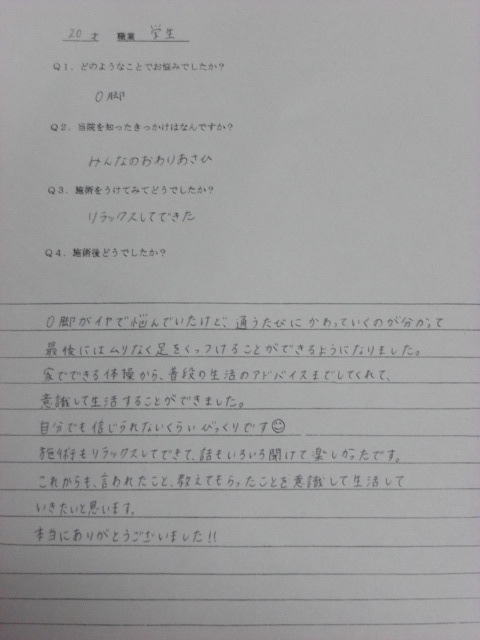 20 才 職業 学生
Q1．どのようなことでお悩みでしたか？
O脚
Q2．当院を知ったきっかけはなんですか？
みんなのおわりあさひ
Q3．施術をうけてみてどうでしたか？
リラックスしてできた
Q4．施術後どうでしたか？
O脚がイヤで悩んでいたけど、通うたびに かわっていくのが分かって
最後にはムリなく足をくっつけることができるようになりました。
家でできる体操から、普段の生活のアドバイスまでしてくれて、
意識して生活することができました。
自分でも信じられないくらいびっくりです☺
施術もリラックスしてできて、話もいろいろ聞けて楽しかったです。
これからも、言われたこと、教えてもらったことを意識して生活して
いきたいと思います。
本当にありがとうございました!!